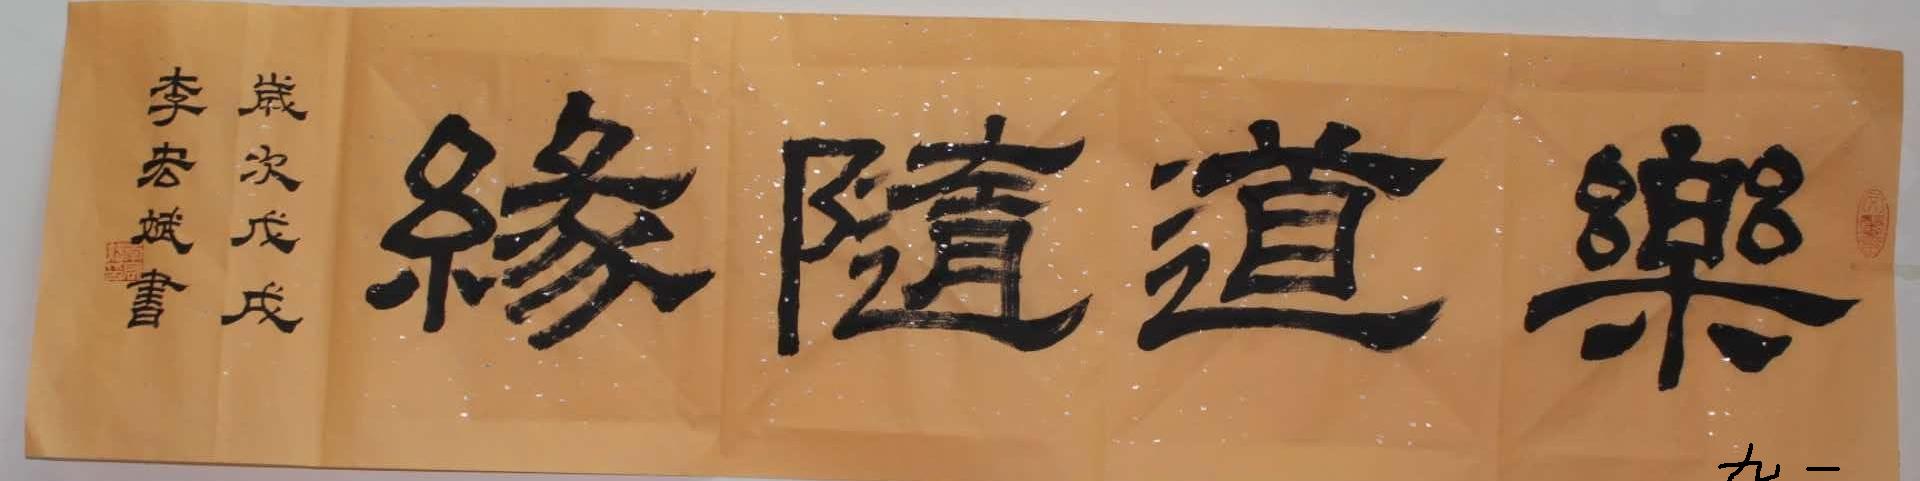 樂道隨緣
歲次戊戌
李宏斌書
一九